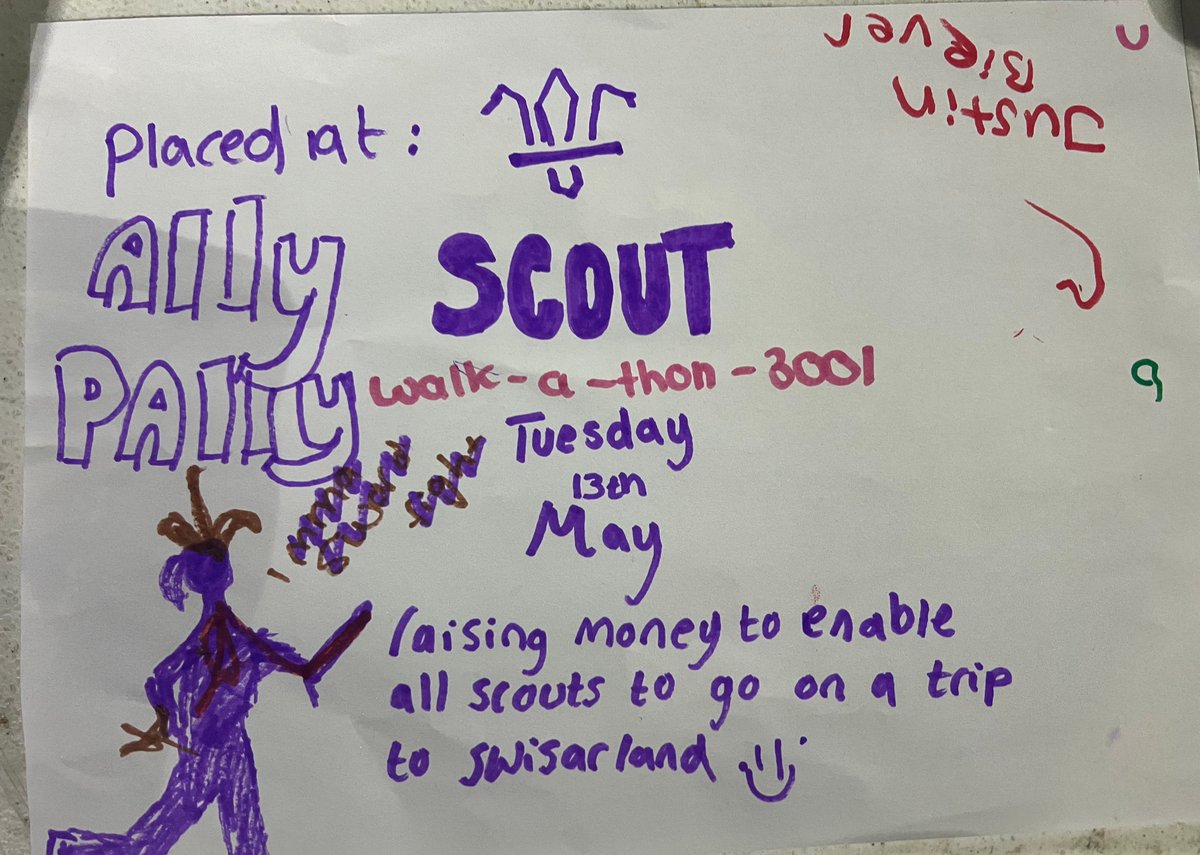 placed at:
Ally
PAlly
SCOUT
walk-a-thon-3001
Tuesday
13th
May
raising money to enable
all scouts to go on a trip
to swisarland
Justin
Biever